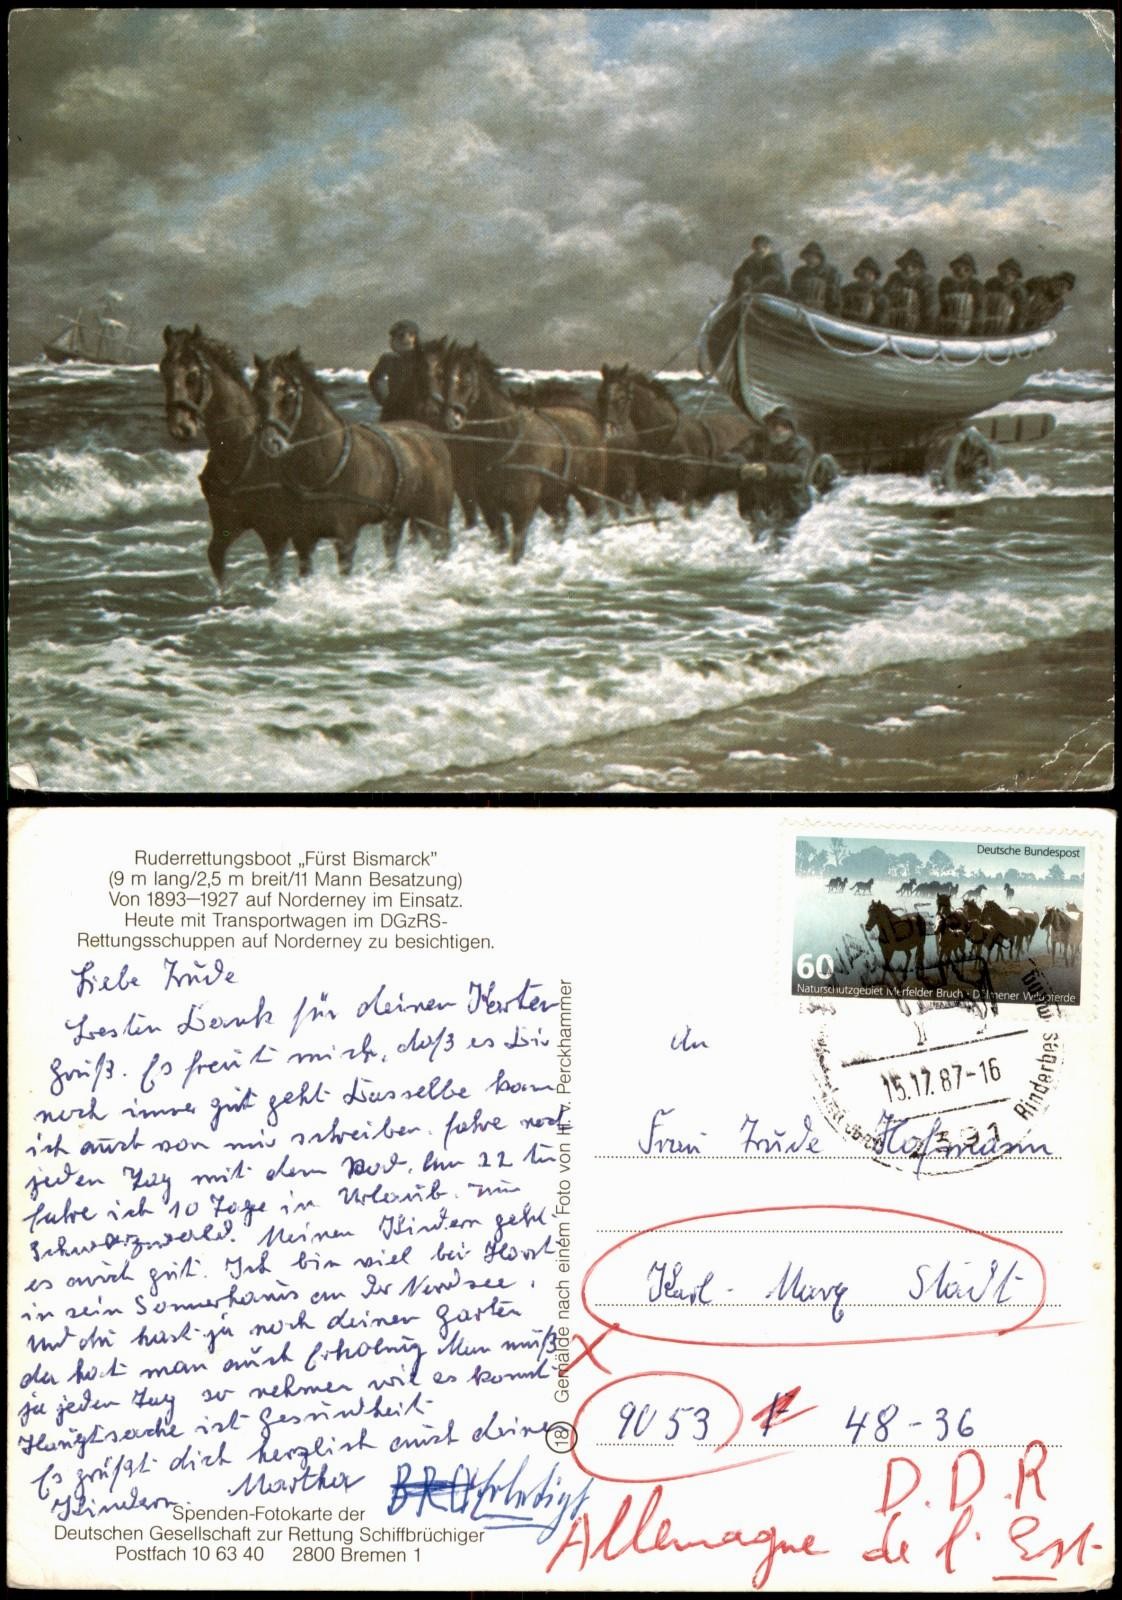 Ruderrettungsboot „Fürst Bismarck"
(9 m lang/2,5 m breit/11 Mann Besatzung)
Von 1893—1927 auf Norderney im Einsatz.
Heute mit Transportwagen im DGzRS-
Rettungsschuppen auf Norderney zu besichtigen.
Liebe Trude
Besten Dank für deinen Karten
gruß. Es freut mich, daß es Dir
noch immer gut geht Dasselbe kann
ich auch von mir schreiben. fahre noch
jeden Tag mit dem Rad. Am 22 Juli
fahre ich 10 Tage in Urlaub. zum
Schwarzwald. Meinen Kindern geht
es auch gut. Ich bin viel bei Horst
in sein Sommerhaus an der Nordsee.
Und du hast ja noch deinen Garten
da hat man auch Erholung Man muß
ja jeden Tag so nehmen wie es kommt
Hauptsache ist Gesundheit
Es grüßt dich herzlich auch deine
Kindern. Martha
Spenden-Fotokarte der
Deutschen Gesellschaft zur Rettung Schiffbrüchiger
Postfach 10 63 40 2800 Bremen 1
18 Gemälde nach einem Foto von H. v. Perckhammer
Deutsche Bundespost
60
Naturschutzgebiet Merfelder Bruch · Dülmener Wildpferde
15.17.87-16
Rinderbes
An
Frau Trude Hofmann
Karl - Marx Stadt
9053 48-36
D.D.R
Allemagne de l'Est